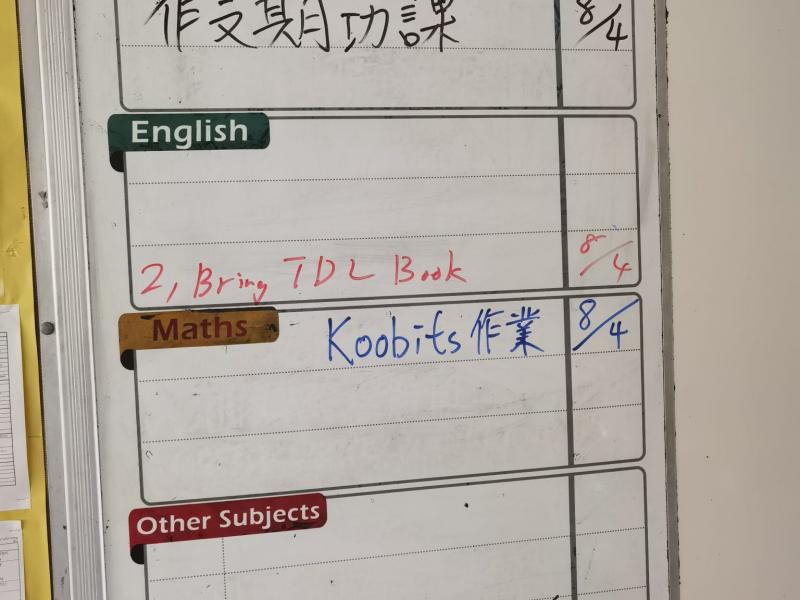 作文期功課 8/4
English
2, Bring TDL Book 8/4
Maths
Koobits 作業 8/4
Other Subjects